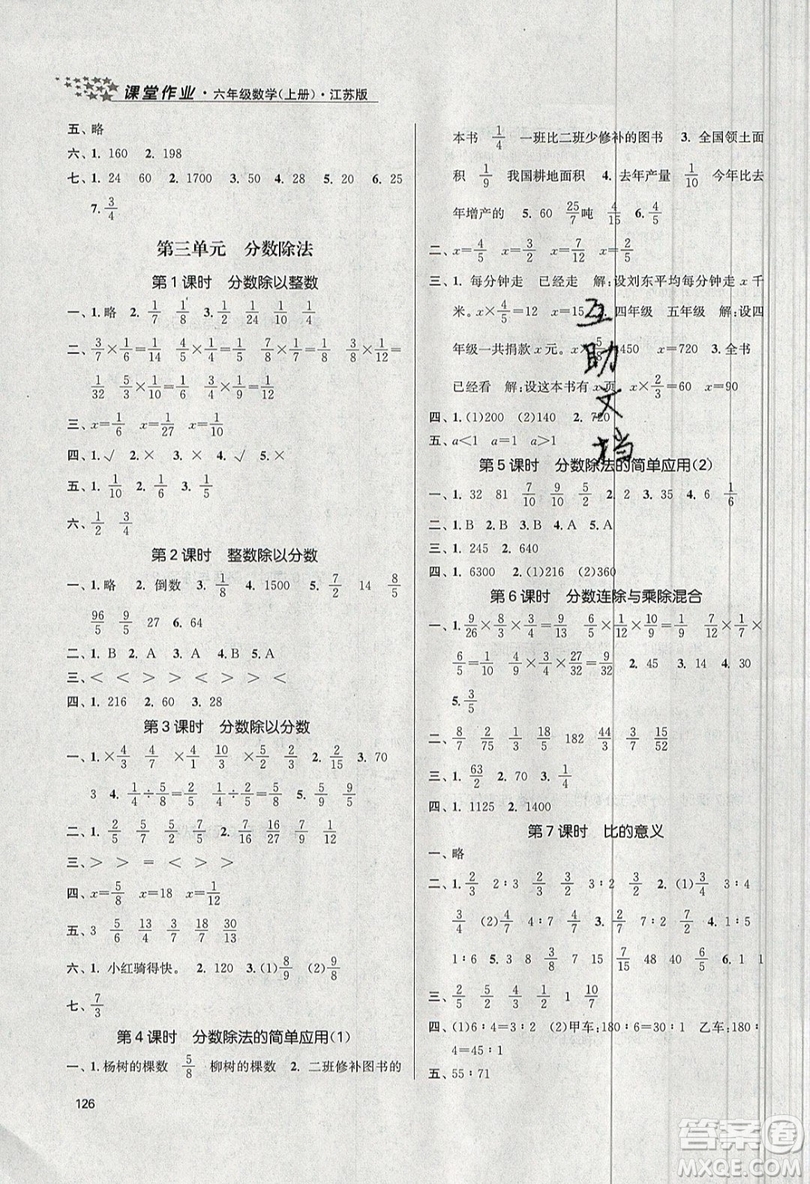 课堂作业·六年级数学(上册)·江苏版
五、略
六、1. 160 2. 198
七、1. 24 60 2. 1700 3. 50 4. 28 5. 20 6. 25
7. 3/4
第三单元 分数除法
第1课时 分数除以整数
一、1. 略 2. 1/7 1/8 3. 1/2 1/24 1/10 1/10
二、3/7×1/6=1/14 5/9×1/10=1/18 7/8×1/7=1/8 5/6×
1/4=5/24 4/5×1/8=1/10 5/9×1/5=1/9
三、x=1/6 x=1/27 x=1/10
四、1. √ 2. × 3. × 4. √ 5. ×
五、1. 1/10 2. 1/6 3. 1/5
六、1/2 3/4
第2课时 整数除以分数
一、1. 略 2. 倒数 3. 1/8 4. 1500 5. 7/2 14 8/5
96/5 9/5 27 6. 64
二、1. B 2. A 3. A 4. B 5. A
三、＜ ＜ ＞ ＞ ＞ ＜
四、1. 216 2. 60 3. 28
第3课时 分数除以分数
一、1. ×4/3 ×4/7 ×10/3 ×5/3 2. 1/3 4/9 3. 70
3 4. 1/4÷5/8=2/5 1/4÷5/8=2/5 5/8 1/2 1/12
二、1. 2/5 5/6 2/3 2. 15 3. 9/10 4. 4 9/4
三、＞ ＞ ＞ ＝ ＜ ＜
四、x=5/8 x=18 x=9/10
五、3 6/5 13/4 2/9 18/13 30/13
六、1. 小红骑得快。 2. 120 3. (1)8/9 (2)8/9
七、7/3
第4课时 分数除法的简单应用(1)
一、1. 杨树的棵数 5/8 柳树的棵数 2. 二班修补图书的
126
本书 1/4 一班比二班少修补的图书 3. 全国领土面
积 1/9 我国耕地面积 4. 去年产量 1/10 今年比去
年增产的 5. 60 25/7吨
二、x=4/5 x=5/3
三、1. 每分钟走 已经走 解:设刘东平均每分钟走 x 千
米。x×4/5=12 x=15 四年级 五年级 解:设四
年级一共捐款 x 元。 x=720 3. 全书
已经看 解:设这本书有 x 页 x×2/3=60 x=90
四、1. (1)200 (2)140 2. 720
五、a＜1 a=1 a＞1
互助文档
第5课时 分数除法的简单应用(2)
一、1. 32 81 7/10 9/10 5/2 2. 2 2 3. 35 4. 6 1/6
二、1. B 2. B 3. B 4. A 5. A
三、1. 245 2. 640
四、1. 6300 2. (1)216 (2)360
第6课时 分数连除与乘除混合
一、1. 9/26×8/3×1/6=2/13
6/5 3/4×4/3×27/32=9/32 2. 45 3. 14 4. 30
5. 3/5
二、8/7 2/75 1/3 18/5 182 44/15 15/52
三、1. 63/2 2. 10 3. 1/4
四、1. 1125 2. 1400
第7课时 比的意义
一、略
二、1. 2/3 2∶3 2/5 3/5 2/3 3/2 2. (1)3/4 3∶4
3/4 (2)4/7 4∶7 4/7 3. 2/7 2/7 7/2 4. 1/6
1∶6 5/6 5∶6 9/5 7∶2 7∶9 5. 1∶6 6. 1
三、2/5 7/4 1/2 10/7 6 5/7
四、(1)6∶4=3/2 (2)甲车:180∶6=30∶1 乙车:180∶
4=45∶1
五、55∶71
答案圈
MXQE.COM